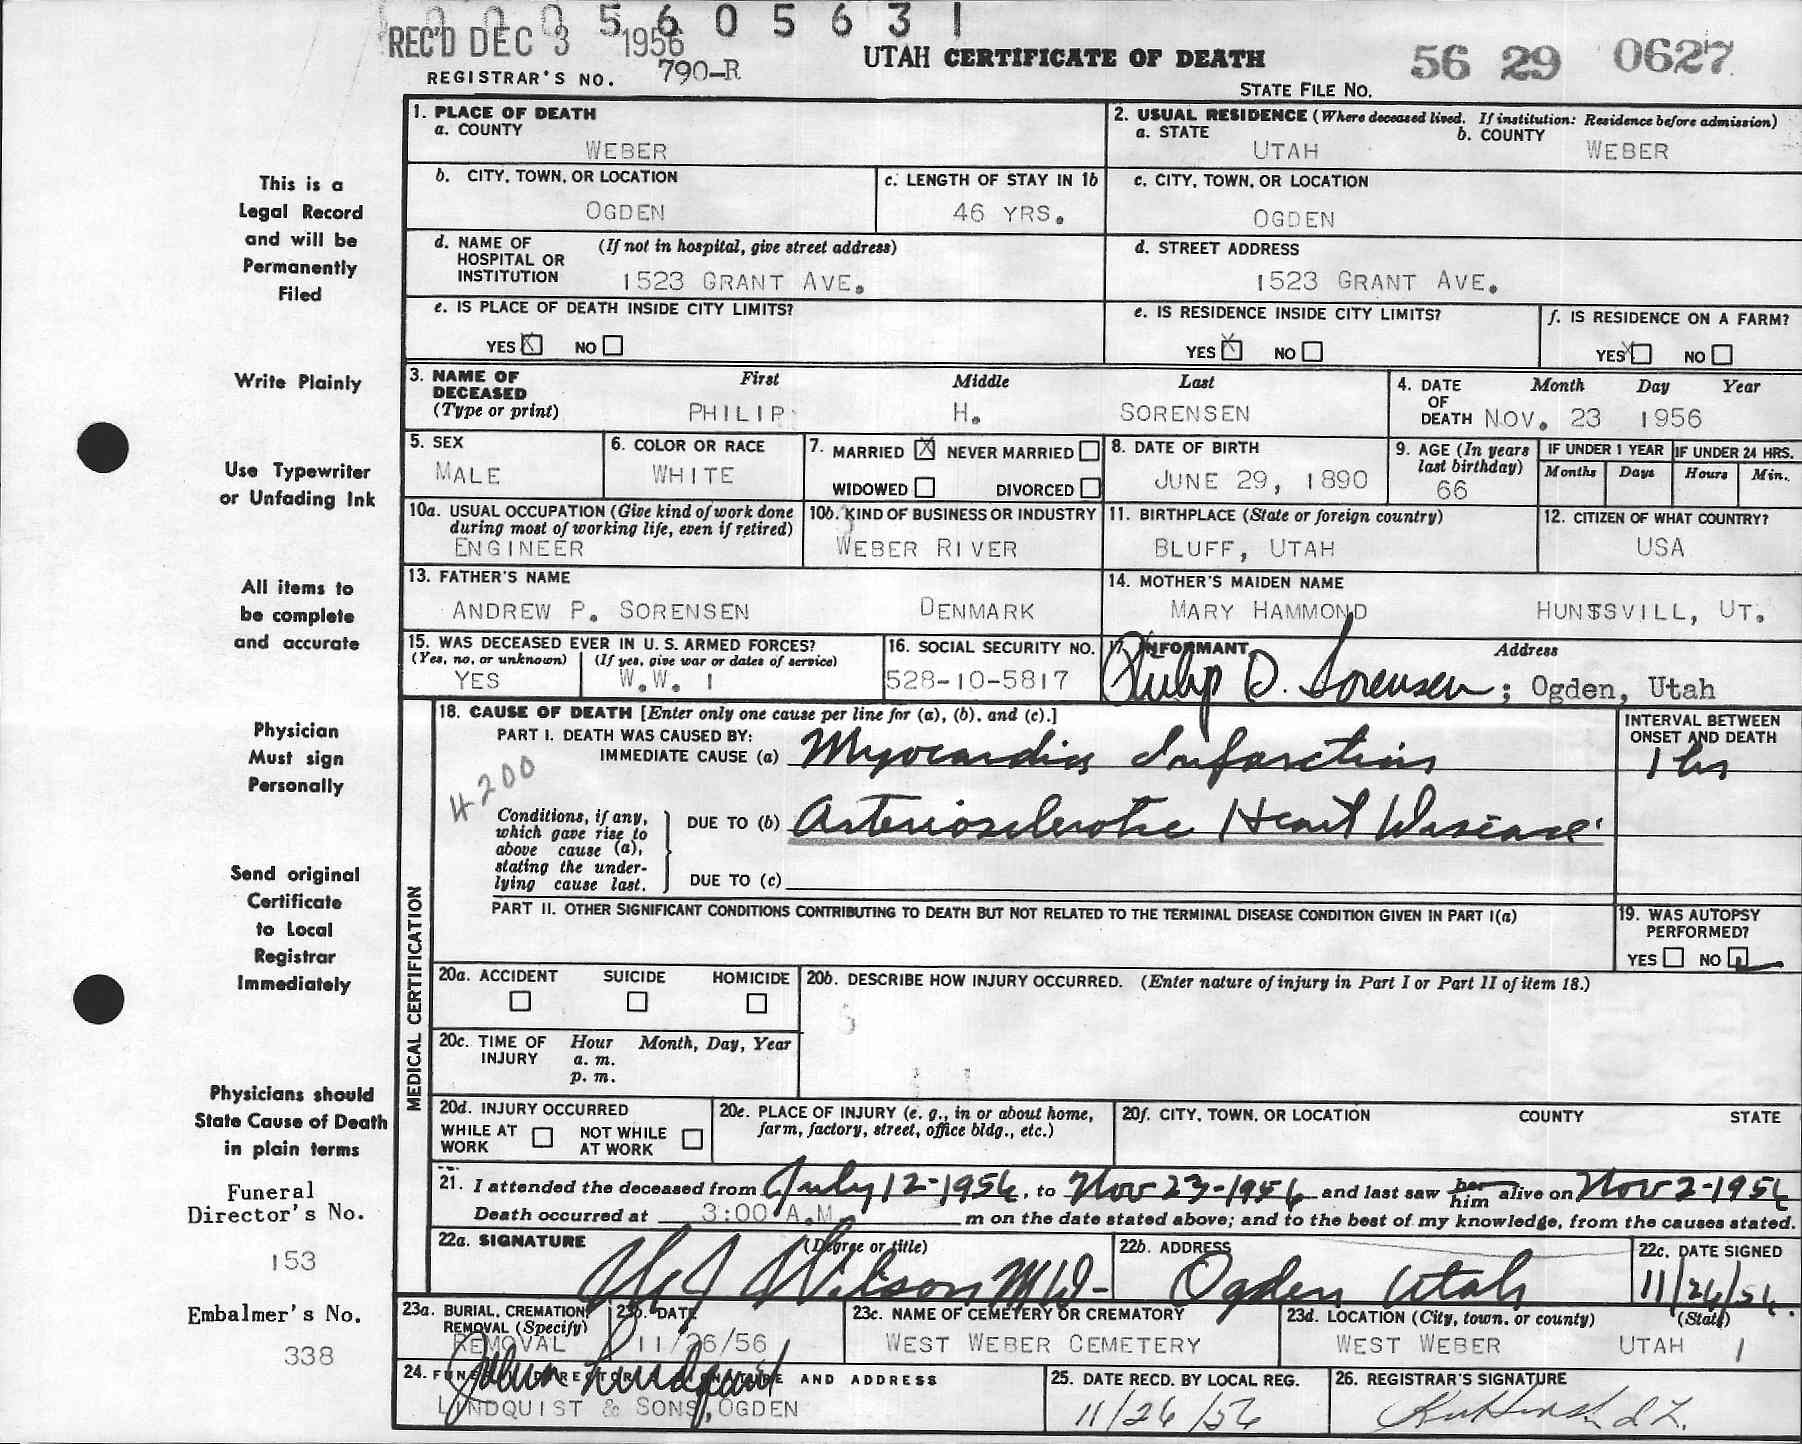 0005605631
REC'D DEC 3 1956
UTAH CERTIFICATE OF DEATH
56 29 0627
REGISTRAR'S NO. 790-R
STATE FILE NO.
This is a
Legal Record
and will be
Permanently
Filed
Write Plainly
Use Typewriter
or Unfading Ink
All items to
be complete
and accurate
Physician
Must sign
Personally
Send original
Certificate
to Local
Registrar
Immediately
Physicians should
State Cause of Death
in plain terms
Funeral
Director's No.
153
Embalmer's No.
338
1. PLACE OF DEATH
a. COUNTY
WEBER
2. USUAL RESIDENCE (Where deceased lived. If institution: Residence before admission)
a. STATE b. COUNTY
UTAH WEBER
b. CITY, TOWN, OR LOCATION
OGDEN
c. LENGTH OF STAY IN 1b
46 YRS.
c. CITY, TOWN, OR LOCATION
OGDEN
d. NAME OF HOSPITAL OR INSTITUTION (If not in hospital, give street address)
1523 GRANT AVE.
d. STREET ADDRESS
1523 GRANT AVE.
e. IS PLACE OF DEATH INSIDE CITY LIMITS?
YES X NO
e. IS RESIDENCE INSIDE CITY LIMITS?
YES X NO
f. IS RESIDENCE ON A FARM?
YES X NO
3. NAME OF DECEASED (Type or print)
First Middle Last
PHILIP H. SORENSEN
4. DATE OF DEATH
Month Day Year
NOV. 23 1956
5. SEX
MALE
6. COLOR OR RACE
WHITE
7. MARRIED X NEVER MARRIED
WIDOWED DIVORCED
8. DATE OF BIRTH
JUNE 29, 1890
9. AGE (In years last birthday)
66
IF UNDER 1 YEAR
Months Days
IF UNDER 24 HRS.
Hours Min.
10a. USUAL OCCUPATION (Give kind of work done during most of working life, even if retired)
ENGINEER
10b. KIND OF BUSINESS OR INDUSTRY
WEBER RIVER
11. BIRTHPLACE (State or foreign country)
BLUFF, UTAH
12. CITIZEN OF WHAT COUNTRY?
USA
13. FATHER'S NAME
ANDREW P. SORENSEN DENMARK
14. MOTHER'S MAIDEN NAME
MARY HAMMOND HUNTSVILL, UT.
15. WAS DECEASED EVER IN U. S. ARMED FORCES?
(Yes, no, or unknown) (If yes, give war or dates of service)
YES W.W. 1
16. SOCIAL SECURITY NO.
528-10-5817
17. INFORMANT Address
Philip D. Sorensen; Ogden, Utah
MEDICAL CERTIFICATION
18. CAUSE OF DEATH [Enter only one cause per line for (a), (b), and (c).]
PART I. DEATH WAS CAUSED BY:
IMMEDIATE CAUSE (a) Myocardial Infarction
INTERVAL BETWEEN ONSET AND DEATH
1 hr
4200
Conditions, if any, which gave rise to above cause (a), stating the underlying cause last.
DUE TO (b) Arteriosclerotic Heart Disease
DUE TO (c)
PART II. OTHER SIGNIFICANT CONDITIONS CONTRIBUTING TO DEATH BUT NOT RELATED TO THE TERMINAL DISEASE CONDITION GIVEN IN PART I(a)
19. WAS AUTOPSY PERFORMED?
YES NO
20a. ACCIDENT SUICIDE HOMICIDE
20b. DESCRIBE HOW INJURY OCCURRED. (Enter nature of injury in Part I or Part II of item 18.)
20c. TIME OF INJURY Hour Month, Day, Year
a. m.
p. m.
20d. INJURY OCCURRED
WHILE AT WORK NOT WHILE AT WORK
20e. PLACE OF INJURY (e. g., in or about home, farm, factory, street, office bldg., etc.)
20f. CITY, TOWN, OR LOCATION COUNTY STATE
21. I attended the deceased from July 12-1956, to Nov 23-1956 and last saw her him alive on Nov 2-1956
Death occurred at 3:00 A.M. m on the date stated above; and to the best of my knowledge, from the causes stated.
22a. SIGNATURE (Degree or title)
Wilson MD-
22b. ADDRESS
Ogden Utah
22c. DATE SIGNED
11/26/56.
23a. BURIAL, CREMATION, REMOVAL (Specify)
REMOVAL
23b. DATE
11/26/56
23c. NAME OF CEMETERY OR CREMATORY
WEST WEBER CEMETERY
23d. LOCATION (City, town, or county) (State)
WEST WEBER UTAH 1
24. FUNERAL DIRECTOR'S SIGNATURE AND ADDRESS
John Lindquist
LINDQUIST & SONS, OGDEN
25. DATE RECD. BY LOCAL REG.
11/26/56
26. REGISTRAR'S SIGNATURE